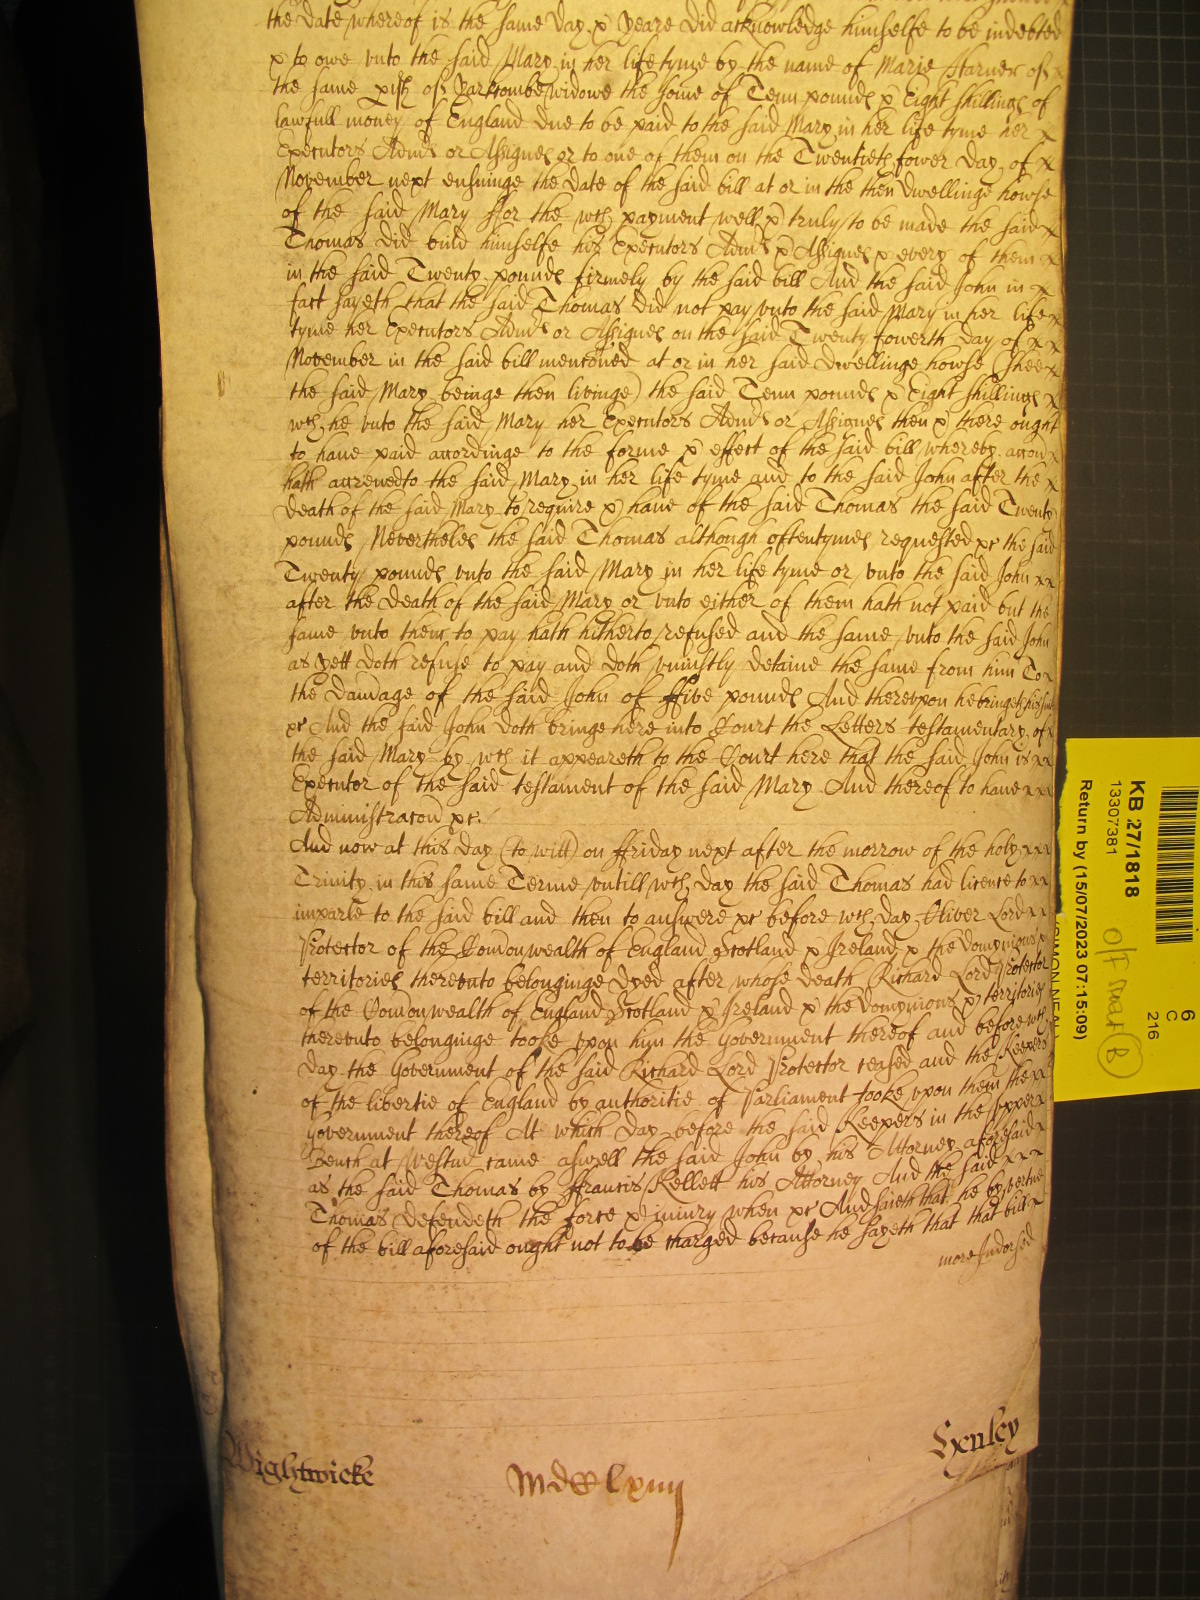 the date whereof is the same day & yeare did acknowledge himselfe to be indebted
& to owe vnto the said Mary in her life tyme by the name of Marie Harner of x
the same pish of Yarkombe widowe the some of Tenn pounds & Eight shillings of
lawfull money of England due to be paid to the said Mary in her life tyme her x
Executors Adm͠s or Assignes or to one of them on the Twentieth fower day of x
November next ensuinge the date of the said bill at or in the then dwellinge howse
of the said Mary ffor the wch payment well & truly to be made the said x
Thomas did bind himselfe his Executors Adm͠s & Assignes & every of them x
in the said Twenty pounds firmely by the said bill And the said John in x
fact sayeth that the said Thomas did not pay vnto the said Mary in her life x
tyme her Executors Adm͠s or Assignes on the said Twenty fowerth day of x x
November in the said bill menc͠oned at or in her said dwellinge howse (shee x
the said Mary beinge then livinge) the said Tenn pounds & Eight shillings x
wch he vnto the said Mary her Executors Adm͠s or Assignes then & there ought
to have paid accordinge to the forme & effect of the said bill whereby acc͠on x
hath accrued to the said Mary in her life tyme and to the said John after the x
death of the said Mary to require & have of the said Thomas the said Twenty
pounds Nevertheles the said Thomas although oftentymes requested &c the said
Twenty pounds vnto the said Mary in her life tyme or vnto the said John x x
after the death of the said Mary or vnto either of them hath not paid but the
same vnto them to pay hath hitherto refused and the same vnto the said John
as yett doth refuse to pay and doth vniustly detaine the same from him To x
the damage of the said John of ffive pounds And therevpon he bringeth his suit
&c And the said John doth bringe here into Court the Letters testamentary of x
the said Mary by wch it appeareth to the Court here that the said John is x x
Executor of the said testament of the said Mary And thereof to have x x x
Administrac͠on &c.
And now at this day (to witt) on ffriday next after the morrow of the holy x x x
Trinity in this same Terme vntill wch day the said Thomas had licence to x x
imparle to the said bill and then to answere &c before wch day Oliver Lord x x
Protector of the Com͠onwealth of England Scotland & Ireland & the dominions &
territories therevnto belonginge dyed after whose death Richard Lord Protector
of the Com͠onwealth of England Scotland & Ireland & the dominions & territories
therevnto belonginge tooke vpon him the Government thereof and before wch
day the Government of the said Richard Lord Protector ceased and the Keepers
of the libertie of England by authoritie of Parliament tooke vpon them the x
government thereof At which day before the said Keepers in the Vpper x
Bench at Westm͠ came aswell the said John by his Attorney aforesaid x
as the said Thomas by ffrancis Kellett his Attorney And the said x x x
Thomas defendeth the force & iniury when &c And saieth that he by vertue
of the bill aforesaid ought not to be charged because he sayeth that that bill x
more Indorsed
Wightwicke
Henley
KB 27/1818
13307381
Return by (15/07/2023 07:15:09)
6
C
216
B